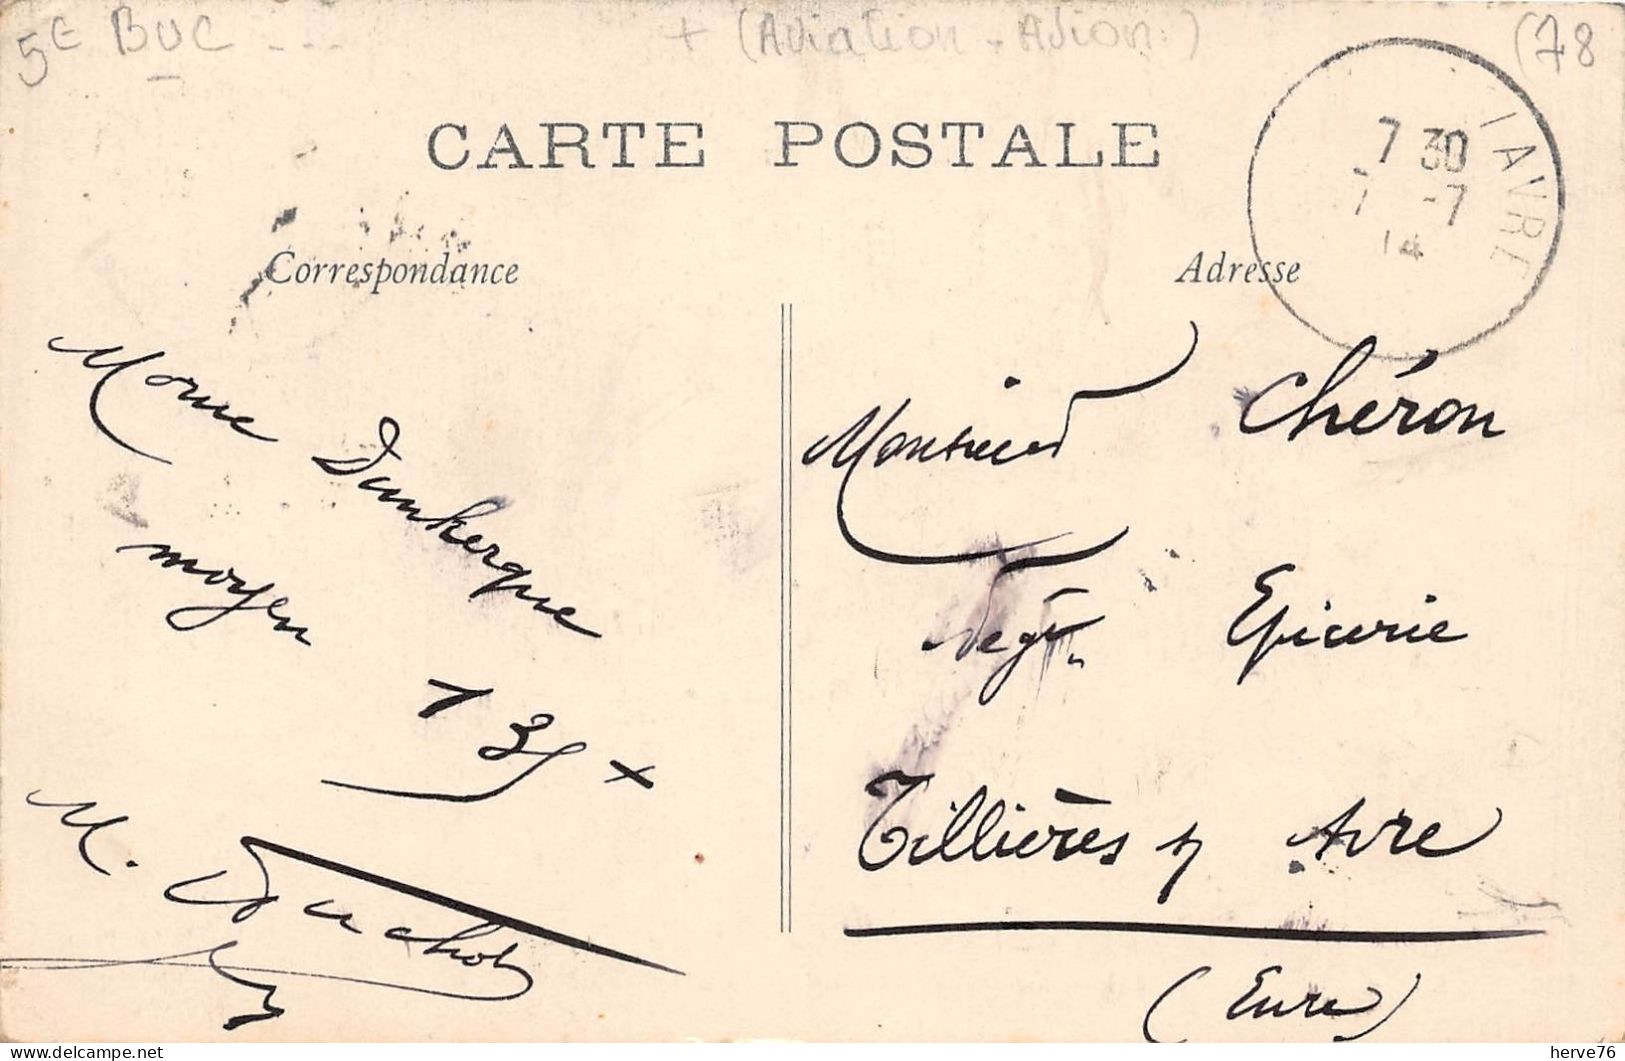 5E BUC --- + (Aviation - Avion.) (78
CARTE POSTALE
7 30
7 -7
14
AVRE
Correspondance
Adresse
Morue Dunkerque
moyen
135 x
M. Duchob
Monsieur Chéron
Négt Epicerie
Tillières s/ Avre
(Eure)
delcampe.net
herve76